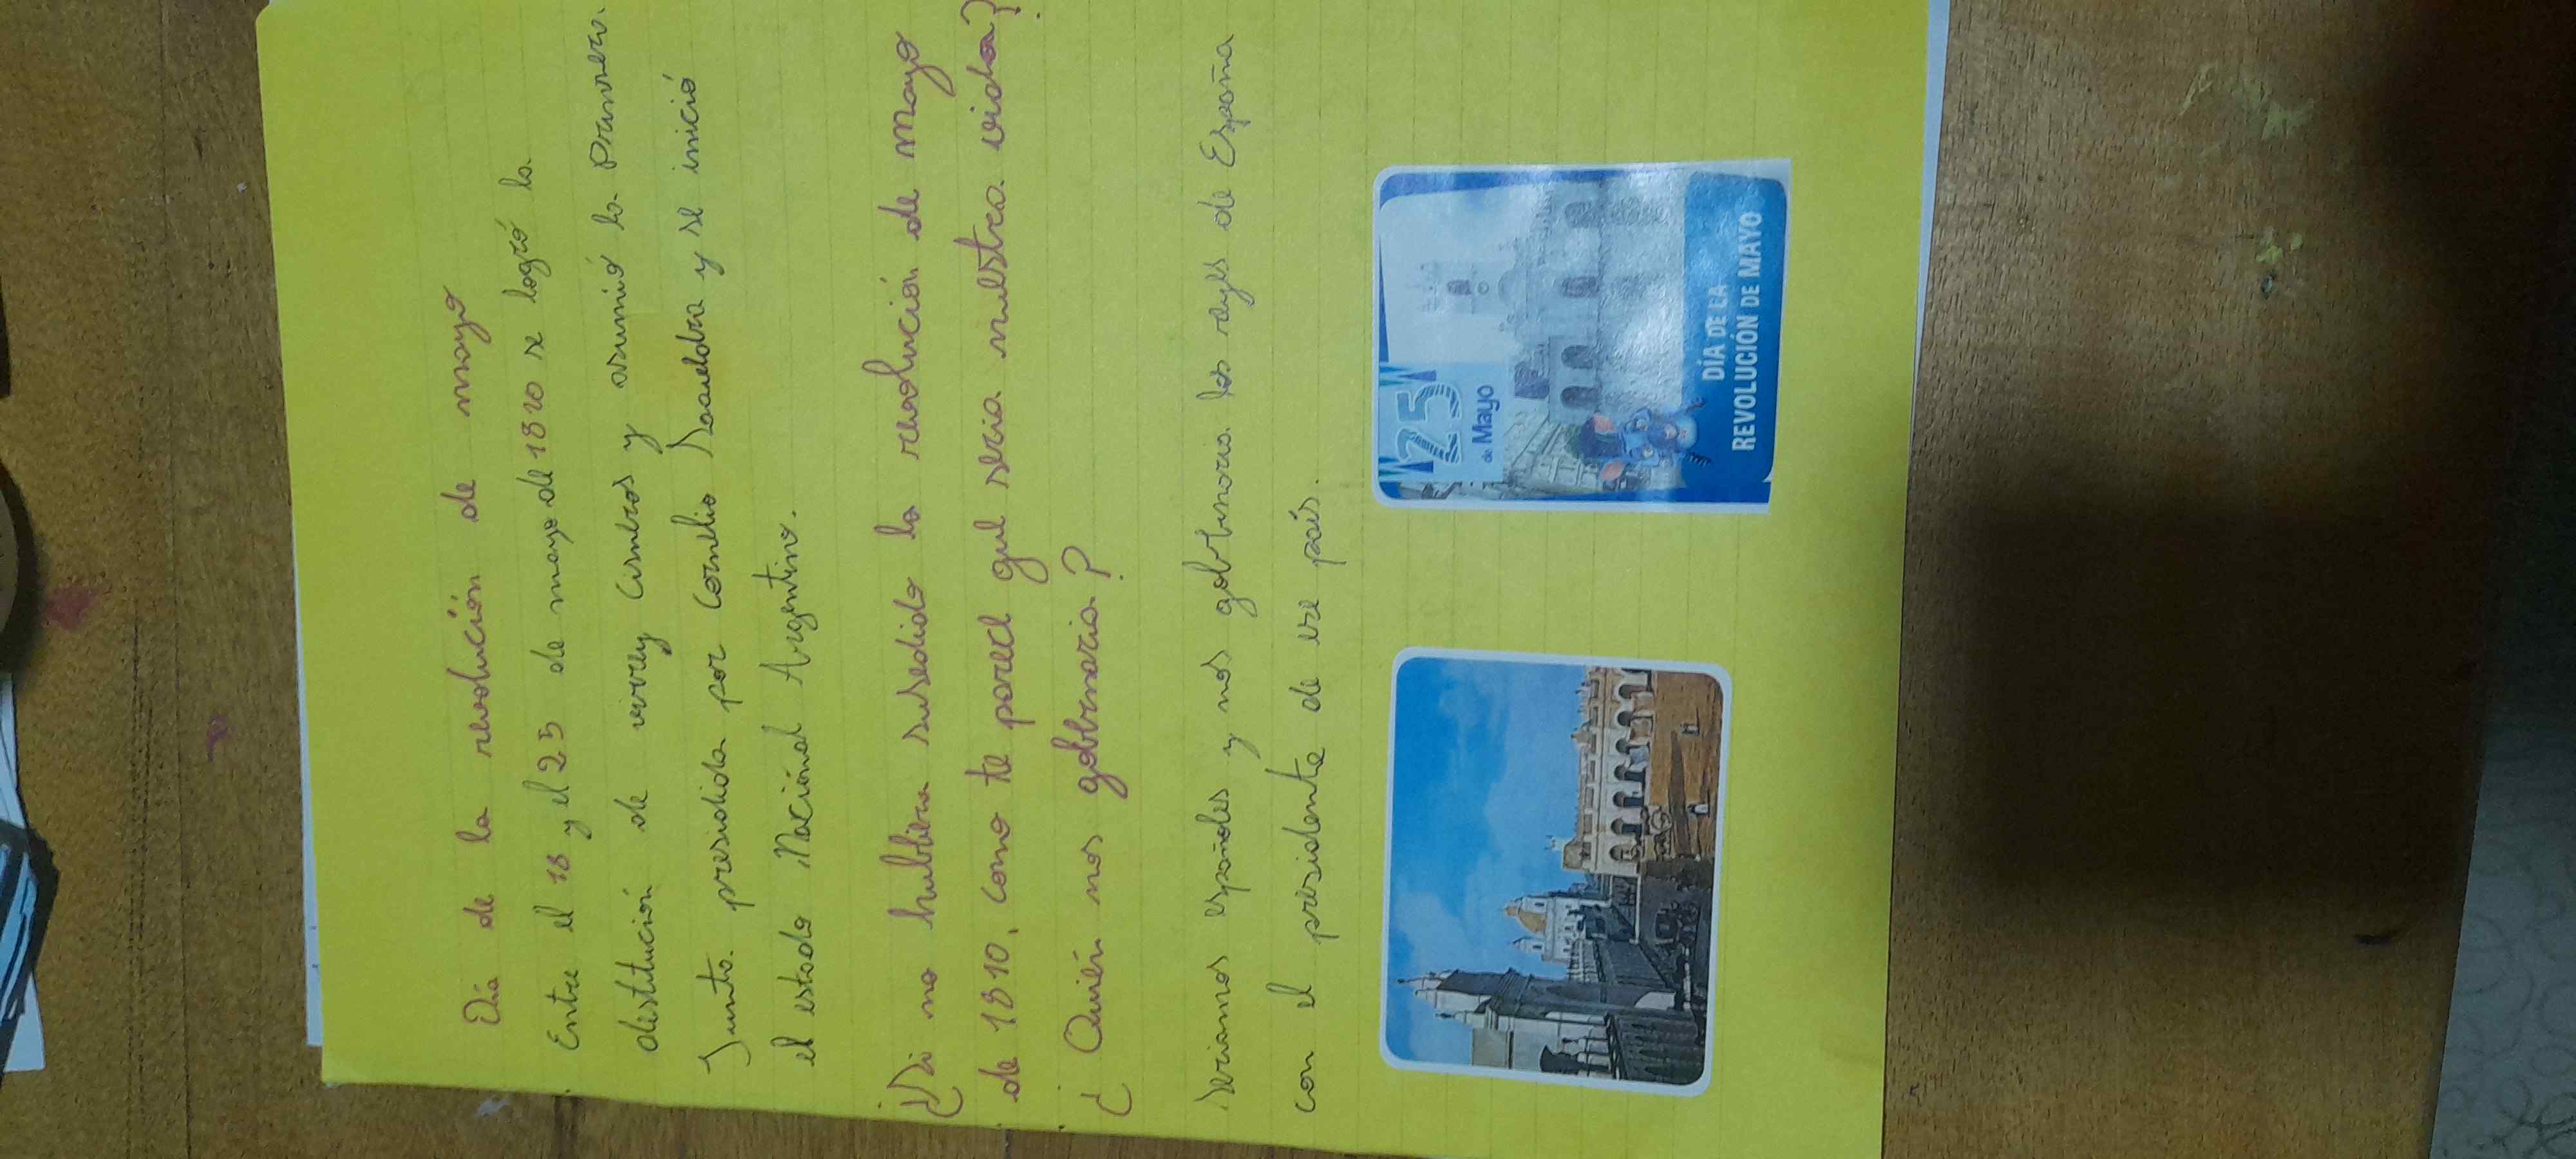 Día de la revolución de mayo
Entre el 18 y el 25 de mayo de 1810 se logró la
destitución de virrey Cisneros y asumió la Primera.
Junta presidida por Cornelio Saavedra y se inició
el estado Nacional Argentino.
¿Si no hubbiera susedido la revolución de mayo
de 1810, como te parece que seria nuestra vida?
¿Quién nos gobernaria?
Seriamos españoles y nos gobernaria los reyes de España
con el presidente de ese país.
25
de Mayo
DÍA DE LA
REVOLUCIÓN DE MAYO